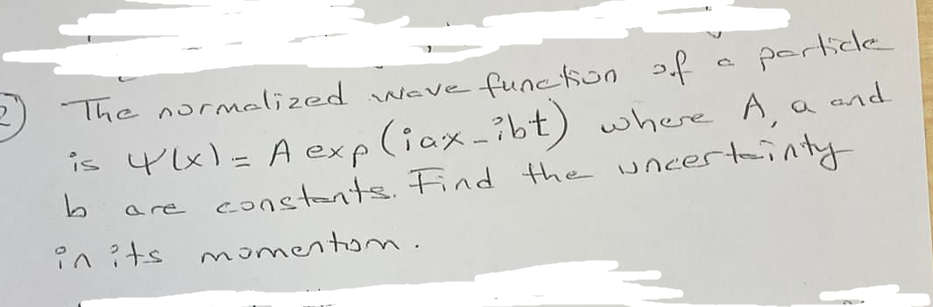 2) The normalized wave function of a particle
is Ψ(x) = A exp(iax - ibt) where A, a and
b are constants. Find the uncertainty
in its momentom.